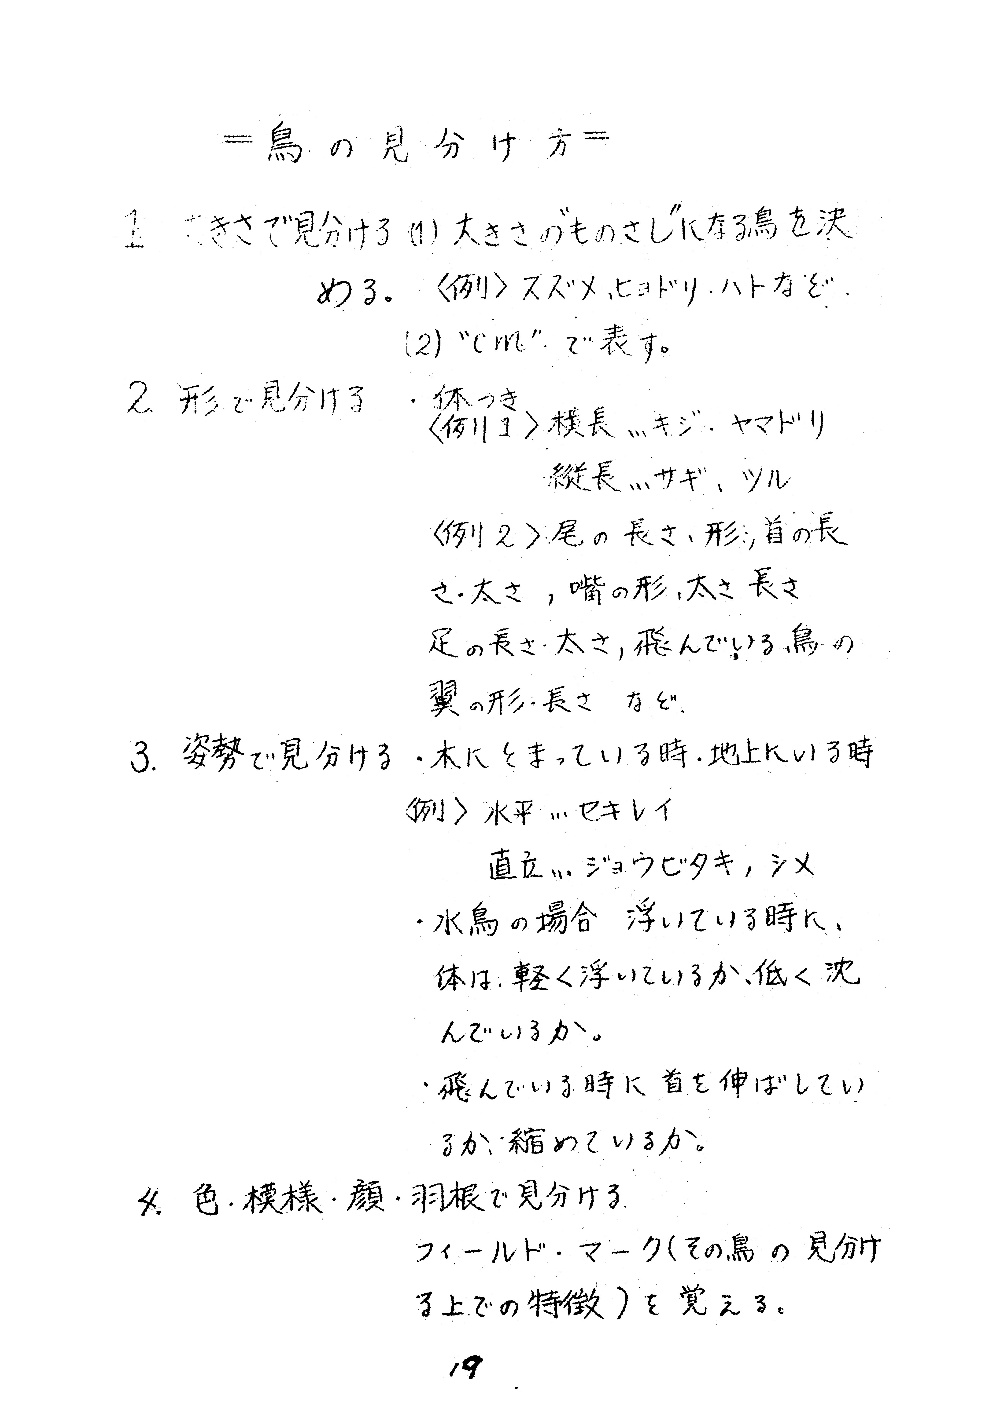 ＝鳥の見分け方＝
1 大きさで見分ける (1) 大きさの"ものさし"になる鳥を決
める。 〈例〉スズメ、ヒヨドリ・ハトなど.
(2) "cm" で表す。
2. 形で見分ける ・体つき
〈例1〉横長…キジ・ヤマドリ
縦長…サギ、ツル
〈例2〉尾の長さ、形、首の長
さ・太さ , 嘴の形、太さ 長さ
足の長さ・太さ, 飛んでいる鳥の
翼の形・長さ など.
3. 姿勢で見分ける ・木にとまっている時・地上にいる時
〈例〉水平…セキレイ
直立…ジョウビタキ, シメ
・水鳥の場合 浮いている時に、
体は、軽く浮いているか、低く沈
んでいるか。
・飛んでいる時に首を伸ばしてい
るか、縮めているか。
4. 色・模様・顔・羽根で見分ける
フィールド・マーク(その鳥の見分け
る上での特徴)を覚える。
19